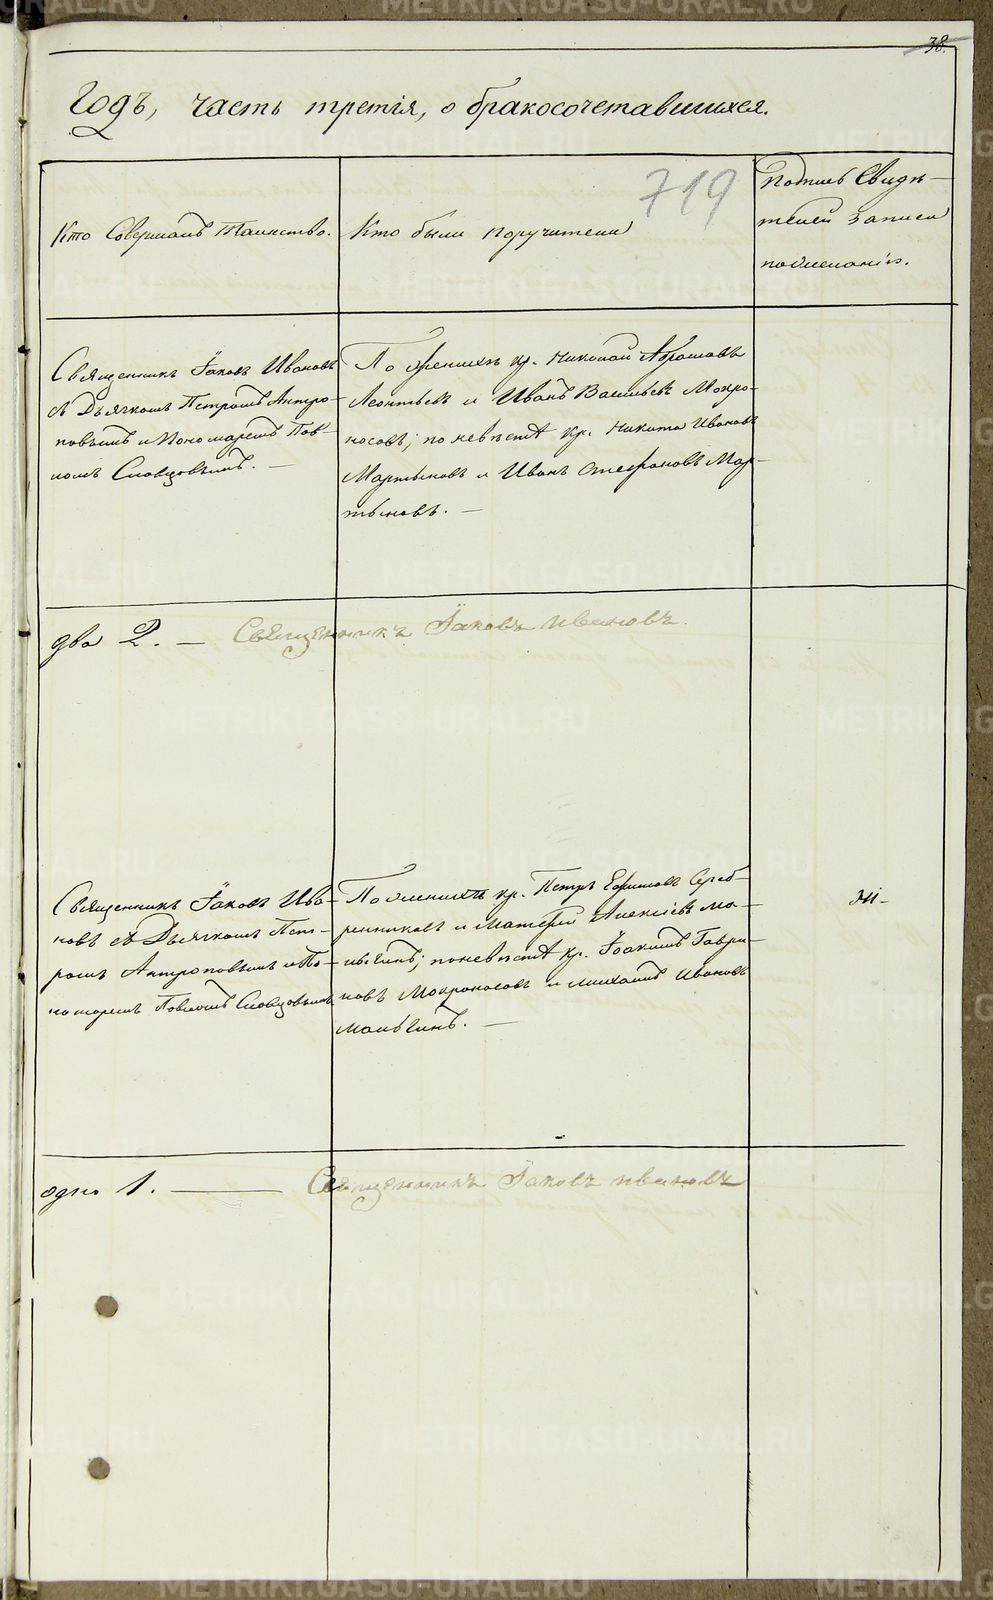 38.
Годъ, часть третія, о бракосочетавшихся.
719
Кто Совершалъ Таинство.
Кто были поручители
Подпись Свидѣ-
телей записи
по желанію.
Священникъ Іаковъ Ивановъ
съ Дьячкомъ Петромъ Антро-
повымъ и Пономаремъ Пав-
ломъ Словцовымъ. —
По женихѣ кр. Николай Абрамовъ
Леонтьевъ и Иванъ Васильевъ Мокро-
носовъ; по невѣстѣ кр. Никита Ивановъ
Мартыновъ и Иванъ Стефановъ Мар-
тыновъ. —
два 2. — Священникъ Іаковъ Ивановъ.
Священникъ Іаковъ Ива-
новъ съ Дьячкомъ Пет-
ромъ Антроповымъ и По-
номаремъ Павломъ Словцовымъ
По женихѣ кр. Петръ Ефимовъ Сереб-
ренниковъ и Матвей Алексѣевъ Ма-
льгинъ; по невѣстѣ кр. Іоакимъ Гаври-
ловъ Мокроносовъ и Михаилъ Ивановъ
Мальгинъ. —
одно 1. — Священникъ Іаковъ Ивановъ
METRIKI.GASO-URAL.RU